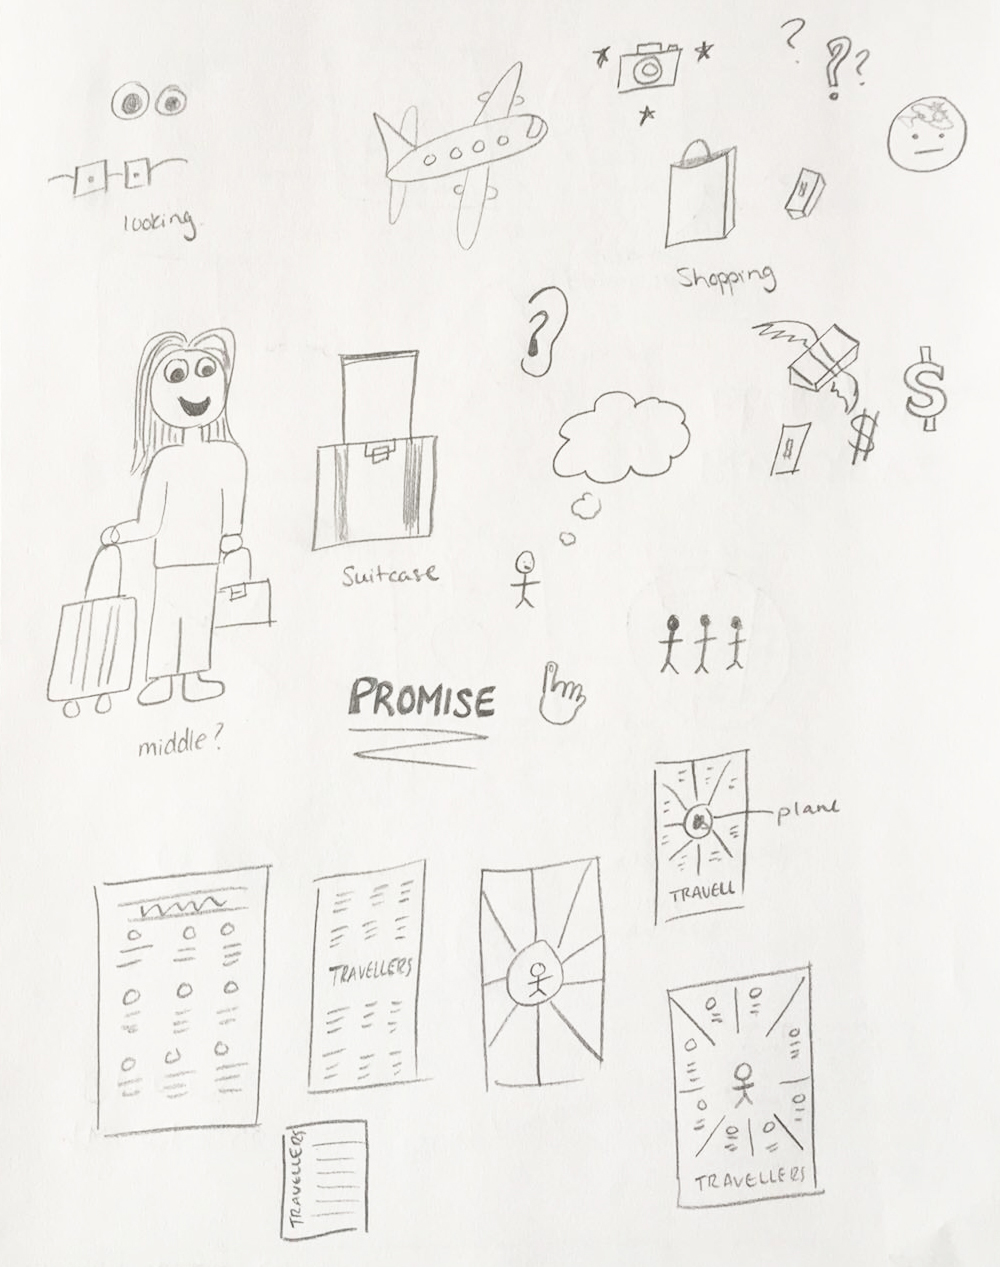 ? ? ?
looking
Shopping
?
$
$
$
Suitcase
PROMISE
middle?
plane
TRAVELL
TRAVELLERS
TRAVELLERS
TRAVELLERS